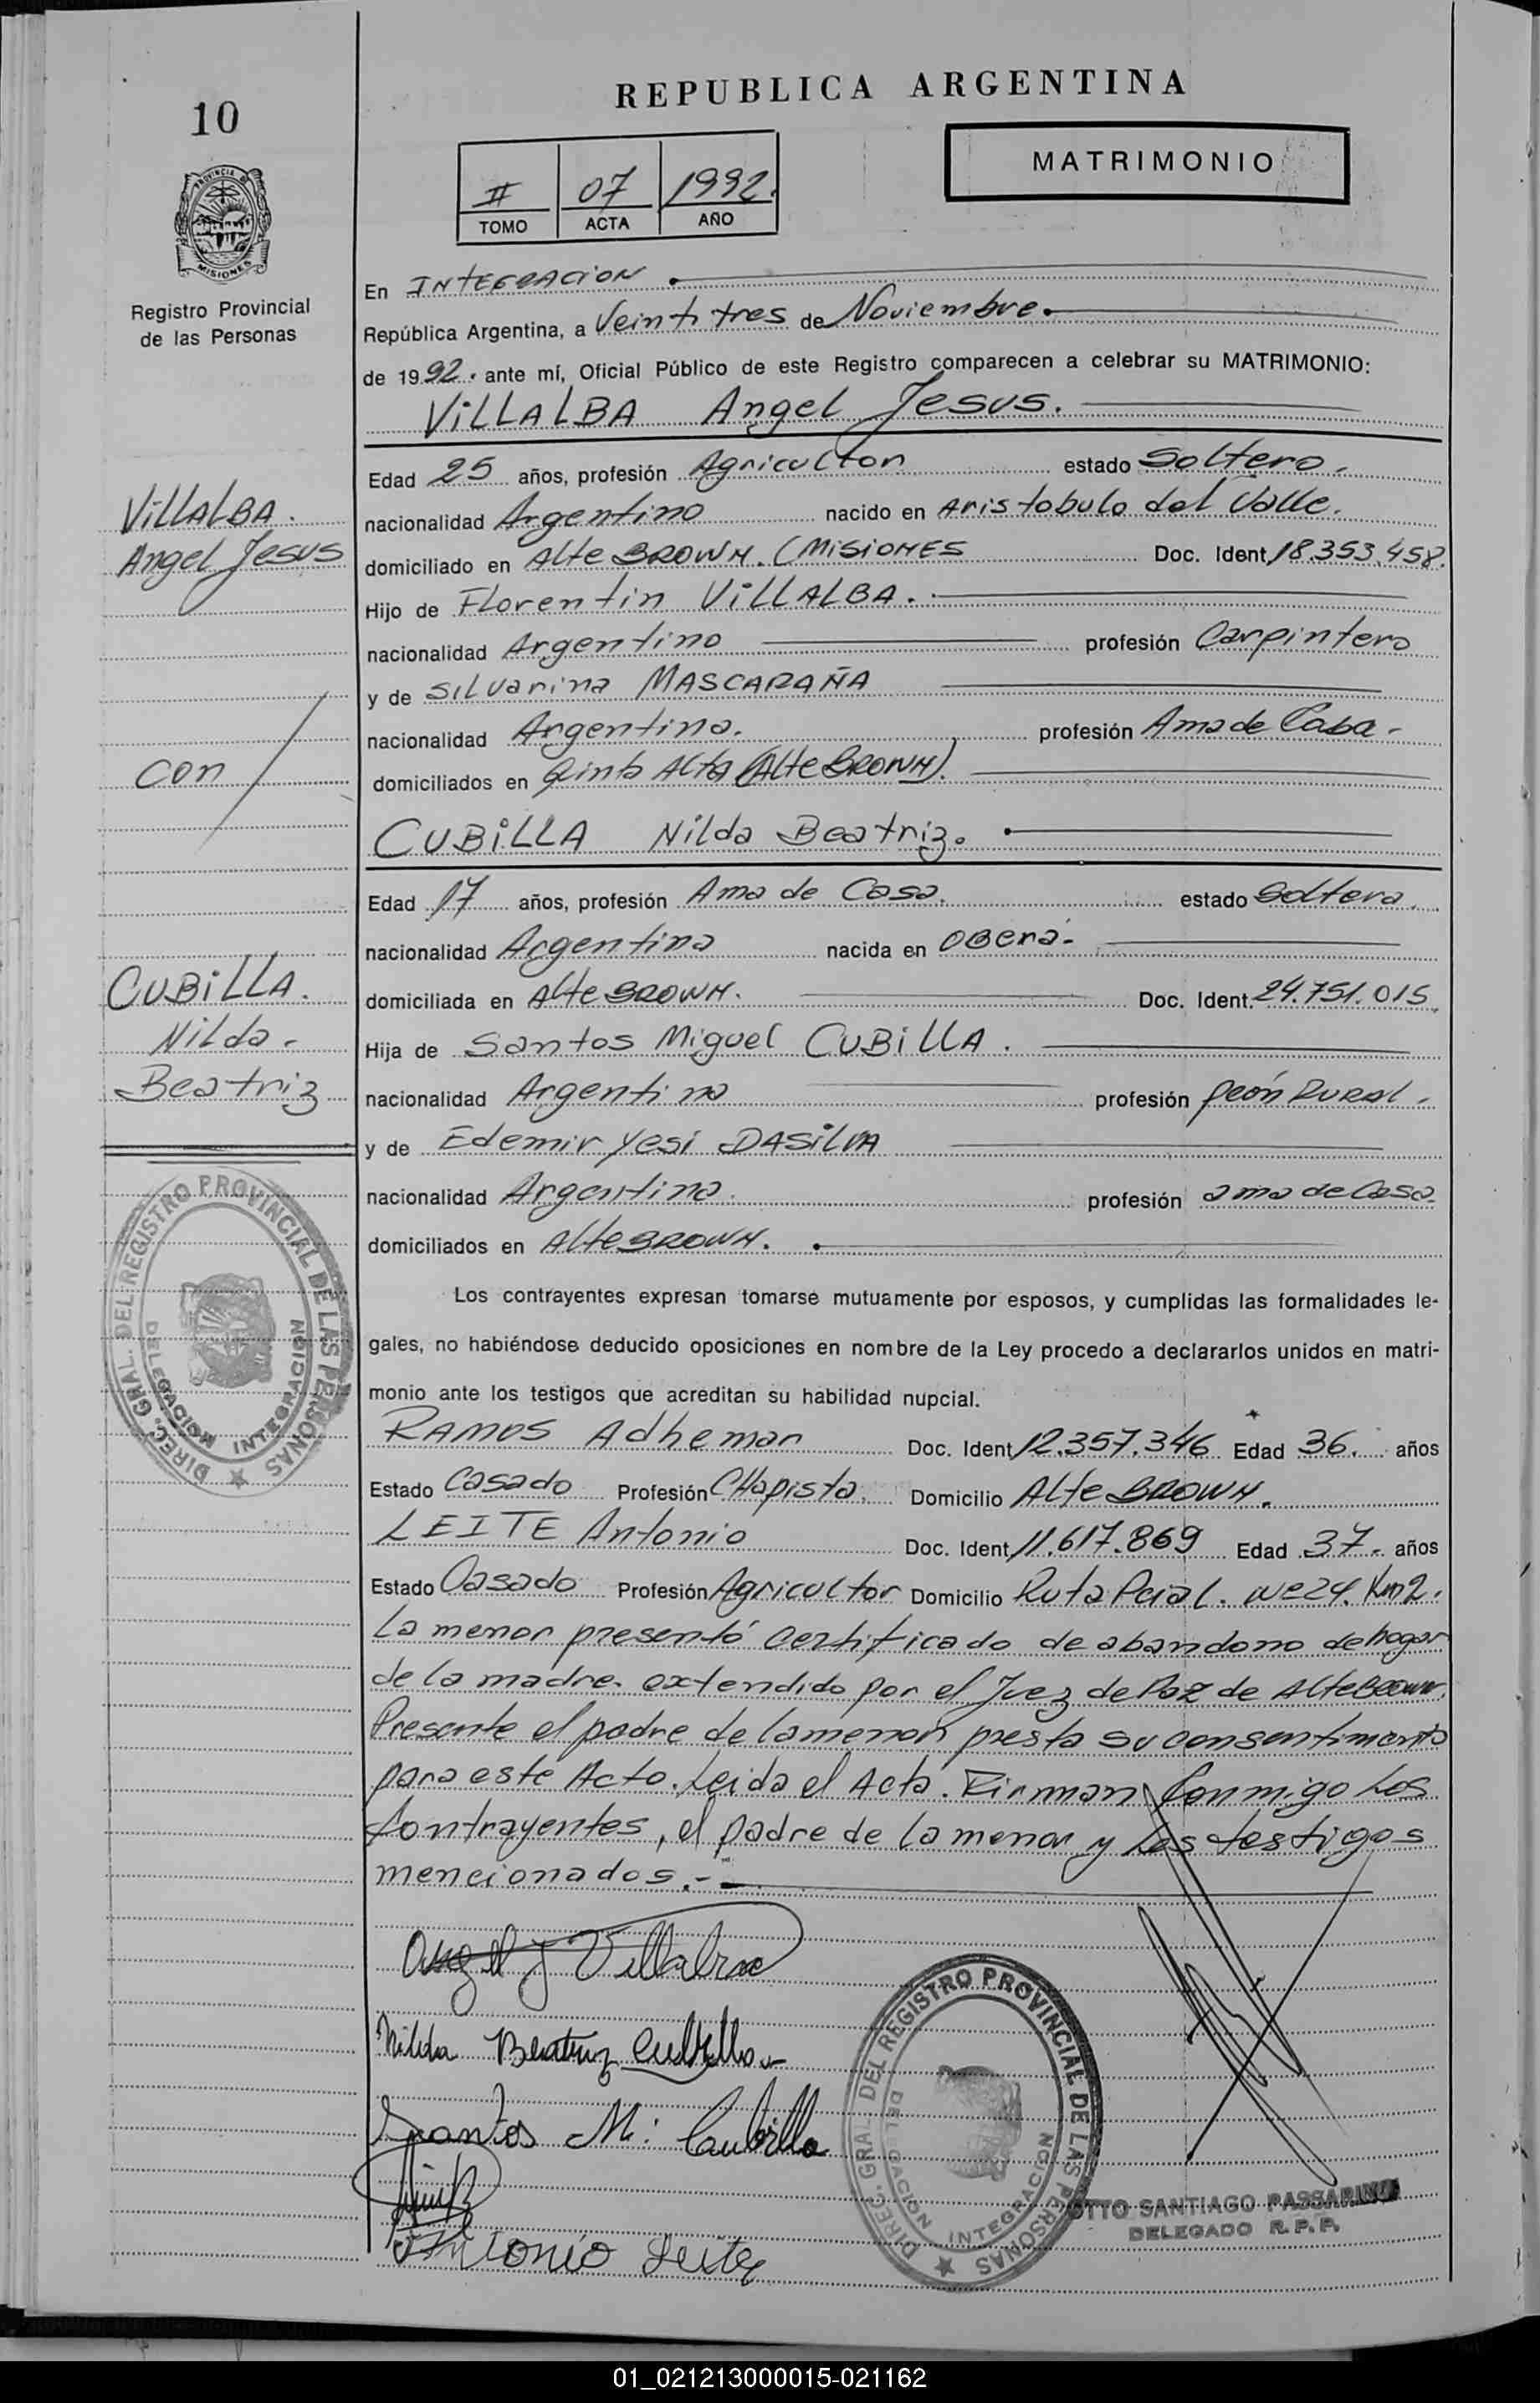 REPUBLICA ARGENTINA
10
MATRIMONIO
II 07 1992.
TOMO ACTA AÑO
PROVINCIA DE
MISIONES
Registro Provincial
de las Personas
En INTEGRACION
República Argentina, a Veintitres de Noviembre.
de 1992. ante mí, Oficial Público de este Registro comparecen a celebrar su MATRIMONIO:
VILLALBA Angel Jesus.
Edad 25 años, profesión Agricultor estado Soltero.
nacionalidad Argentino nacido en Aristobulo del Valle.
domiciliado en Alte BROWN. (MISIONES Doc. Ident. 18.353.458.
Hijo de Florentin VILLALBA.
nacionalidad Argentino profesión Carpintero
y de Silvarina MASCARAÑA
nacionalidad Argentina. profesión Ama de Casa.
domiciliados en Pinto Alta (Alte BROWN).
VILLALBA.
Angel Jesus
con
CUBILLA Nilda Beatriz.
Edad 17 años, profesión Ama de Casa. estado Soltera.
nacionalidad Argentina nacida en OBerá.
domiciliada en Alte BROWN. Doc. Ident. 24.751.015
Hija de Santos Miguel CUBILLA.
nacionalidad Argentino profesión peón RURAL.
y de Edemir Yesi DASILVA
nacionalidad Argentina. profesión ama de Casa.
domiciliados en Alte BROWN.
CUBILLA.
Nilda.
Beatriz
DIREC. GRAL. DEL REGISTRO PROVINCIAL DE LAS PERSONAS
DELEGACION INTEGRACION
Los contrayentes expresan tomarse mutuamente por esposos, y cumplidas las formalidades le-
gales, no habiéndose deducido oposiciones en nombre de la Ley procedo a declararlos unidos en matri-
monio ante los testigos que acreditan su habilidad nupcial.
RAMOS Adhemar Doc. Ident. 12.357.346 Edad 36. años
Estado Casado Profesión CHapista. Domicilio Alte BROWN.
LEITE Antonio Doc. Ident. 11.617.869 Edad 37. años
Estado Casado Profesión Agricultor Domicilio Ruta Pcial. Nº 24. Km 2.
La menor presentó certificado de abandono de hogar
de la madre. extendido por el Juez de Paz de Alte BROWN.
Presente el padre de la menor presta su consentimiento
para este Acto. Leida el Acta. Firman Conmigo Los
Contrayentes, el padre de la menor y Los testigos
mencionados.-
Angel J Villalba
Nilda Beatriz Cubilla
Santos M. Cubilla
Antonio Leite
DIREC. GRAL. DEL REGISTRO PROVINCIAL DE LAS PERSONAS
DELEGACION INTEGRACION
OTTO SANTIAGO PASSARINO
DELEGADO R.P.P.
01_021213000015-021162